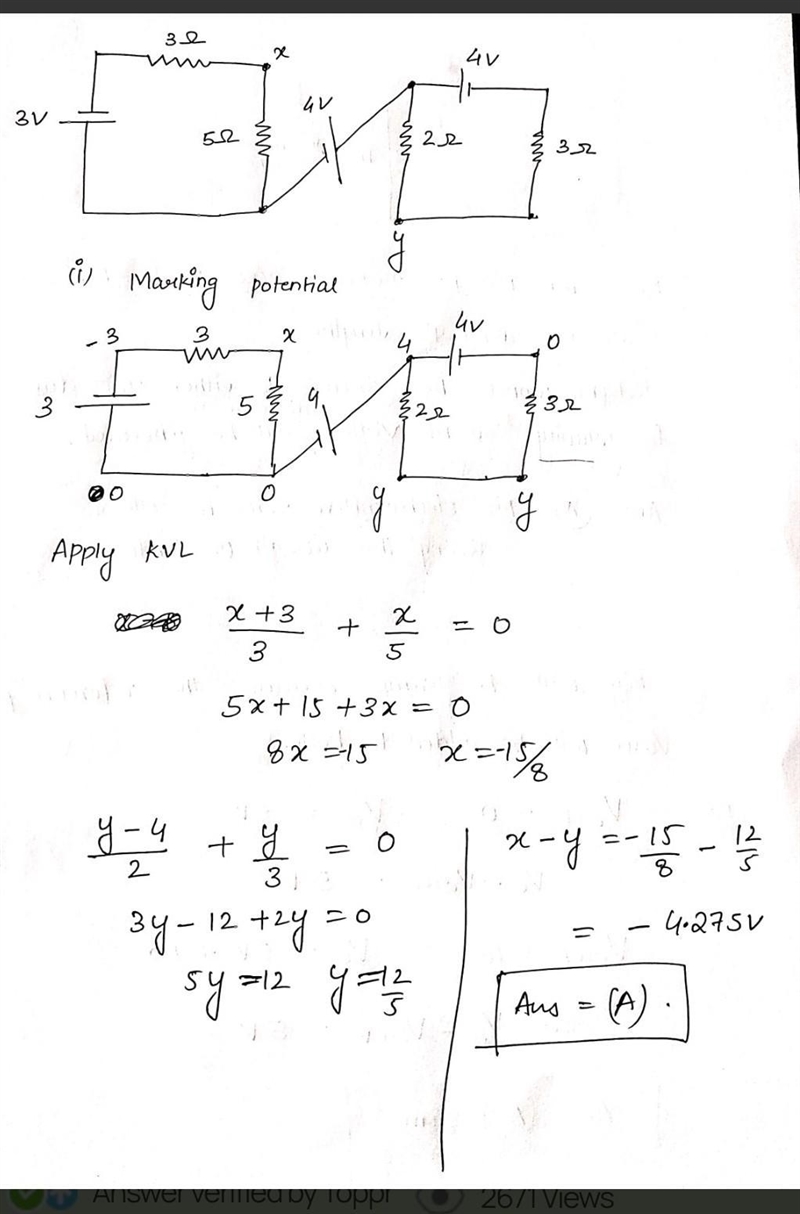 3Ω
x
4V
4V
3V
5Ω
2Ω
3Ω
y
(i) Marking potential
-3 3 x
4 4V 0
3 5 4 2Ω 3Ω
0 0 y y
Apply KVL
x+3/3 + x/5 = 0
5x+15+3x = 0
8x =-15 x =-15/8
y-4/2 + y/3 = 0
3y-12+2y=0
5y=12 y=12/5
x-y =-15/8 - 12/5
= - 4.275V
Ans = (A) .
Answer verified by Toppr 2671 Views